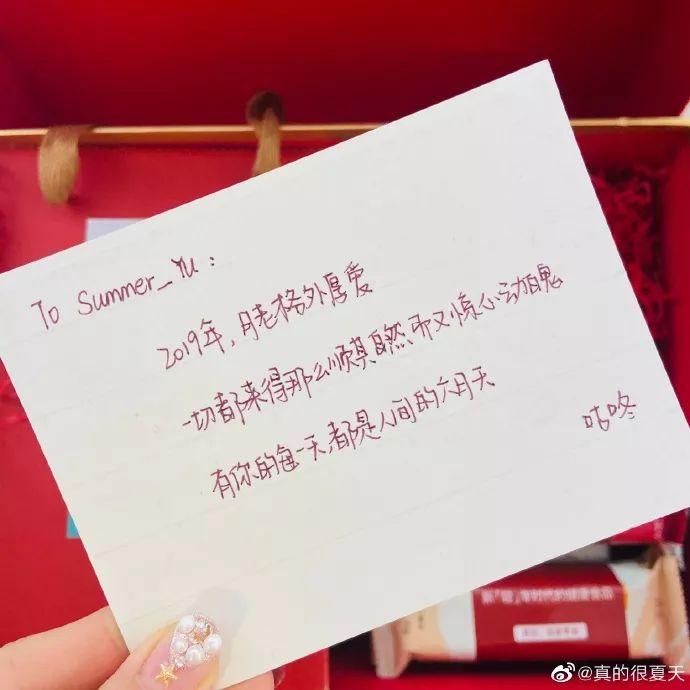 To Summer_Yu:
2019年,月老格外厚爱
一切都来得那么顺其自然而又惊心动魄
有你的每一天,都是人间的六月天
咕咚
@真的很夏天